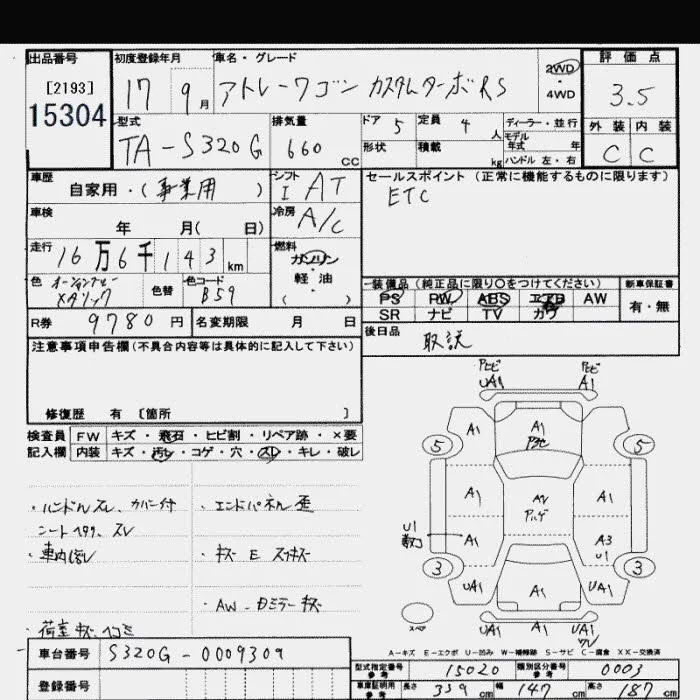 出品番号 初度登録年月 車名・グレード 評価点
[2193] 17 9月 アトレーワゴン カスタムターボRS 2WD・4WD 3.5
15304
型式 排気量 ドア 5 定員 4人 ディーラー・並行 外装 内装
TA-S320G 660cc 形状 積載 kg モデル年式 年 ハンドル 左・右 C C
車歴 シフト セールスポイント(正常に機能するものに限ります)
自家用・(事業用) I AT ETC
車検 冷房
年 月( 日) A/C
走行 燃料
16万6千143km ガソリン・軽油( )
色 色替 色コード 装備品(純正品に限り○をつけてください) 新車保証書
メタリック B59 PS PW ABS エアB AW 有・無
SR ナビ TV カワ
R券 9780円 名変期限 月 日 後日品
取説
注意事項申告欄(不具合内容等は具体的に記入して下さい)
修復歴 有 [箇所 ]
検査員 FW キズ・飛石・ヒビ割・リペア跡・×要
記入欄 内装 キズ・汚レ・コゲ・穴・スレ・キレ・破レ
・ハンドルスレ、カバー付 ・エンドパネル歪
シートヘタリ、スレ
・車内 ・キズ E スリキズ
・AW・カミラーキズ
・荷室キズヘコミ
UA1 A1
A1 A1 A1
5 5
A1 A2 A1
U1 A1 A3
U1
3 3
UA1 A1 UA1
スペア UA1 A1 UA1
A-キズ E-エクボ U-凹み W-補修跡 S-サビ C-腐食 XX-交換済
車台番号 S320G-0009309
型式指定番号 参考 15020 類別区分番号 参考 0003
登録番号
車庫証明用 参考 長さ 339cm 幅 147cm 高さ 187cm